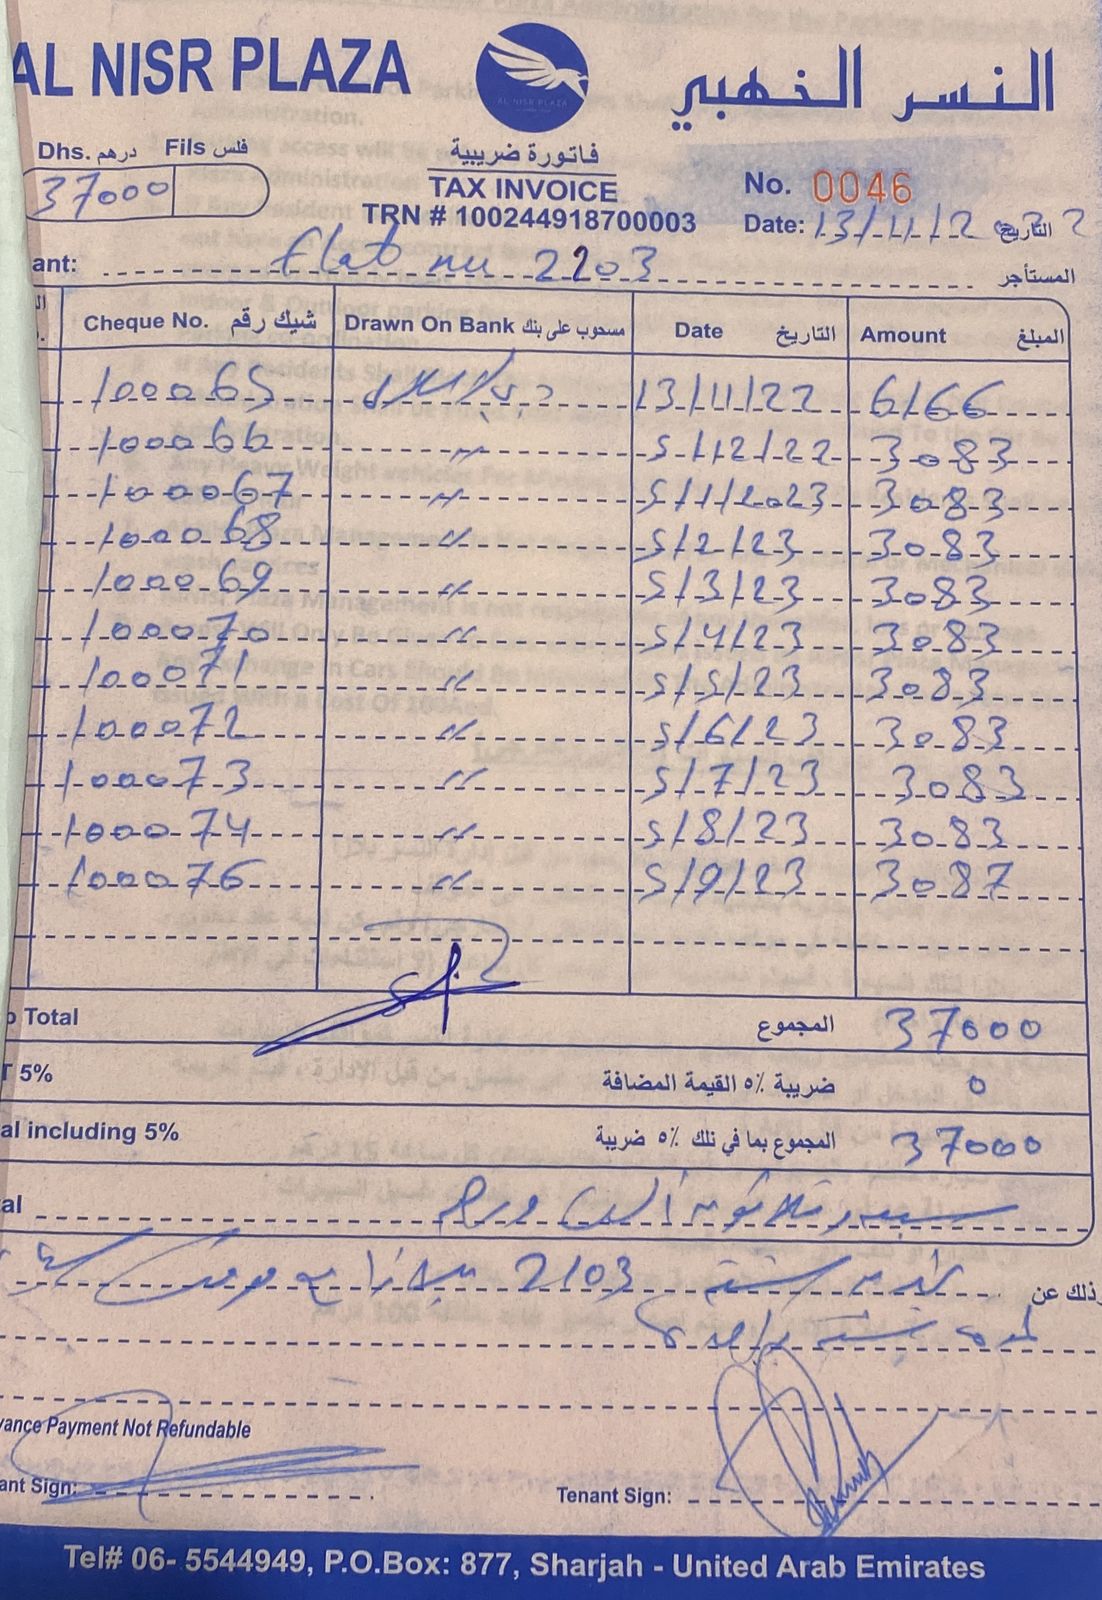 AL NISR PLAZA
AL NISR PLAZA
النسر الذهبي
Dhs. درهم Fils فلس
37000
فاتورة ضريبية
TAX INVOICE
TRN # 100244918700003
No. 0046
Date: 13/11/2022 التاريخ
ant: flat nu 2203 المستأجر
Cheque No. شيك رقم Drawn On Bank مسحوب على بنك Date التاريخ Amount المبلغ
100065 13/11/22 6166
100066 " 5/12/22 3083
100067 " 5/1/2023 3083
100068 " 5/2/23 3083
100069 " 5/3/23 3083
100070 " 5/4/23 3083
100071 " 5/5/23 3083
100072 " 5/6/23 3083
100073 " 5/7/23 3083
100074 " 5/8/23 3083
100076 " 5/9/23 3087
Total المجموع 37000
T 5% ضريبة ٥٪ القيمة المضافة 0
al including 5% المجموع بما في ذلك ٥٪ ضريبة 37000
al
وذلك عن 2103
vance Payment Not Refundable
ant Sign: Tenant Sign:
Tel# 06- 5544949, P.O.Box: 877, Sharjah - United Arab Emirates